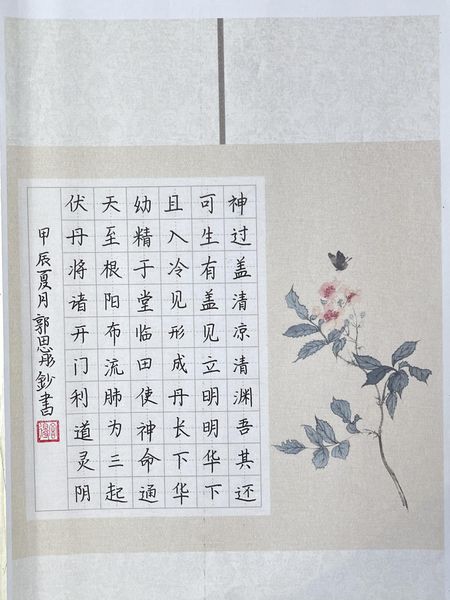 神过盖清凉清渊吾其还
可生有盖见立明明华下
且入冷见形成丹长下华
幼精于堂临田使神命通
天至根阳布流肺为三起
伏丹将诸开门利道灵阴
甲辰夏月郭思彤钞书